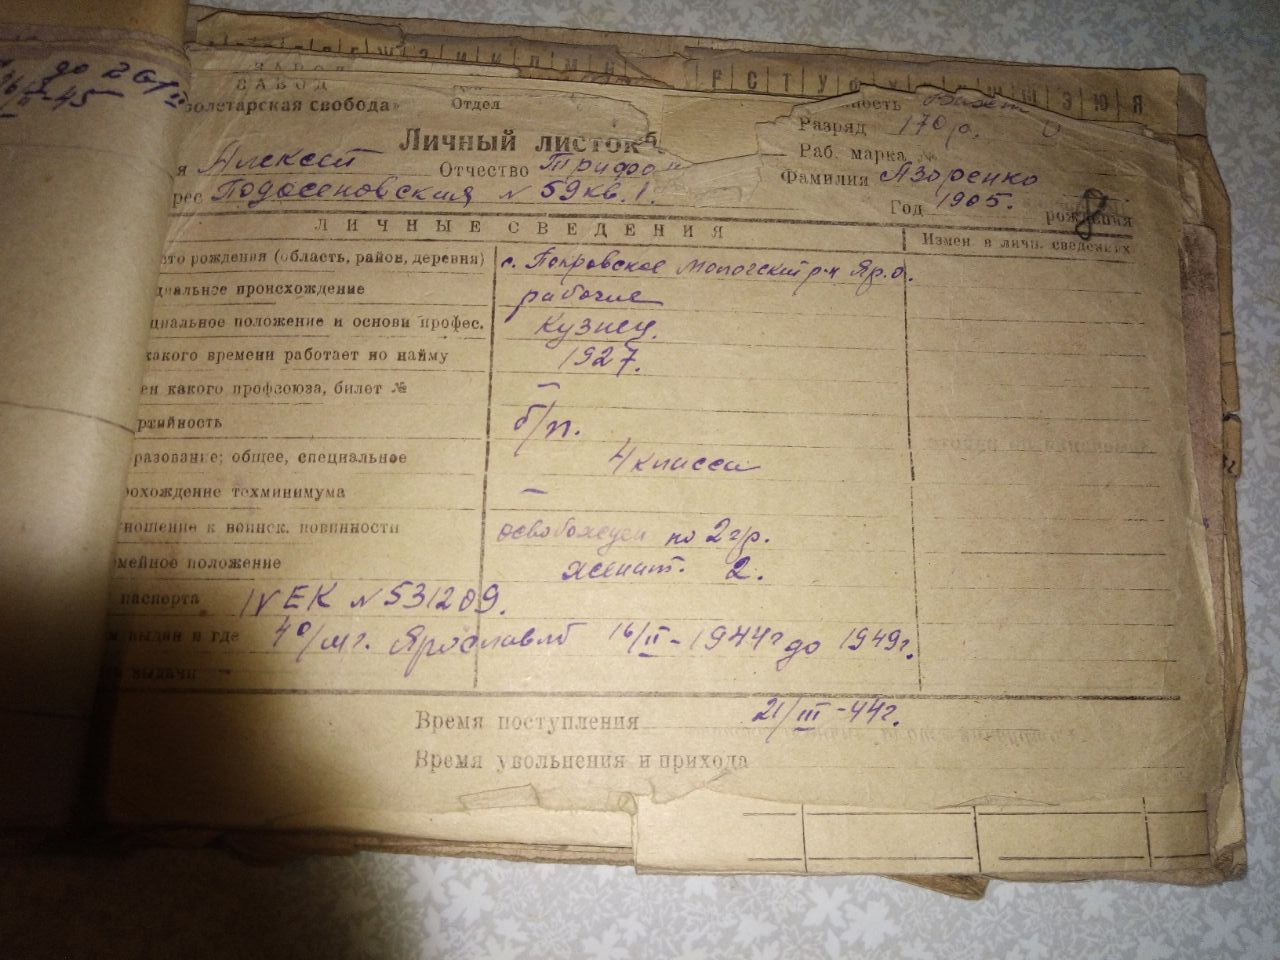 до 26/II
16/II-45
З И К Л М
Р С Т У
Э Ю Я
ЗАВОД
ЗАВОД
олетарская свобода»
Отдел
ность
Разряд 170 р.
Личный листок
Раб. марка №
я Алексей Отчество Трифо
Фамилия Азоренко
рес Подосеновская N 59 кв. 1.
Год 1905. рождения
8
ЛИЧНЫЕ СВЕДЕНИЯ
Измен. в личн. сведениях
сто рождения (область, район, деревня) с. Покровское Мологский р-н Яр. о.
циальное происхождение рабочие
циальное положение и основн профес. Кузнец.
какого времени работает по найму 1927.
ен какого профсоюза, билет № –
ртийность б/п.
разование: общее, специальное 4 класса
рохождение техминимума –
ношение к воинск. повинности освобожден по 2 г/р.
мейное положение женат. 2.
паспорта IV ЕК N 531209.
м выдан и где 4 о/м г. Ярославль 16/II-1944 г до 1949 г.
выдачи
Время поступления 21/III-44 г.
Время увольнения и прихода